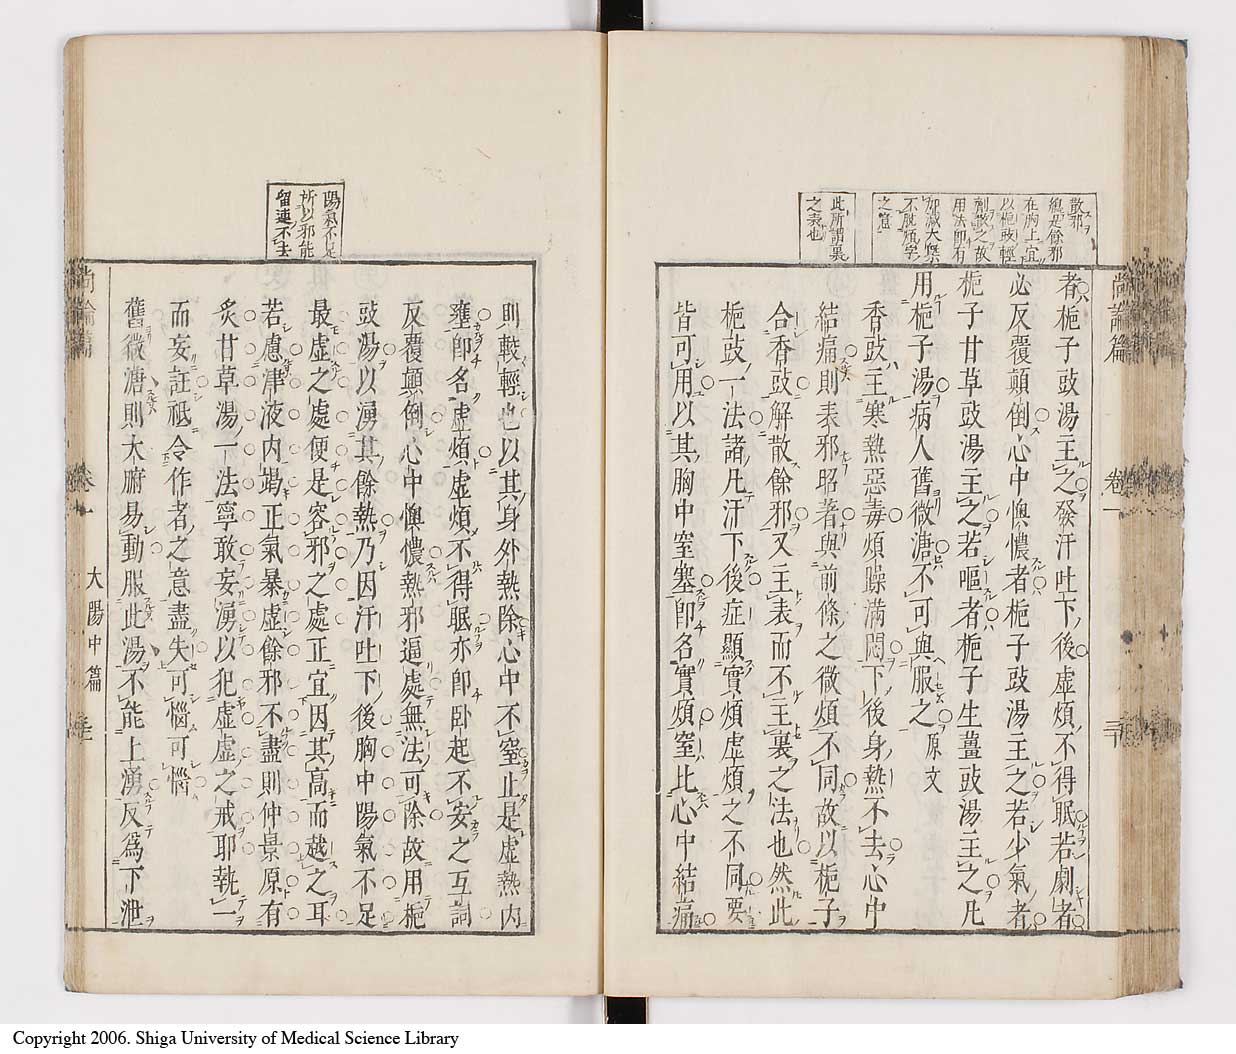 散邪
總是餘邪
在胸上宜
以梔豉輕
劑散之故
用法即有
加減大槩
不脫瓶字
之意
此所謂裏
之表也
尚論篇
卷一
者梔子豉湯主之發汗吐下後虛煩不得眠若劇者
必反覆顛倒心中懊憹者梔子豉湯主之若少氣者
梔子甘草豉湯主之若嘔者梔子生薑豉湯主之凡
用梔子湯病人舊微溏不可與服之原文
香豉主寒熱惡毒煩躁滿悶下後身熱不去心中
結痛則表邪昭著與前條之微煩不同故以梔子
合香豉解散餘邪又主表而不主裏之法也然此
梔豉一法諸凡汗下後症顯實煩虛煩之不同要
皆可用以其胸中窒塞即名實煩窒比心中結痛
陽氣不足
所以邪能
留連不去
則較輕也以其身外熱除心中不窒止是虛熱內
壅即名虛煩虛煩不得眠亦即臥起不安之互詞
反覆顛倒心中懊憹熱邪逼處無法可除故用梔
豉湯以湧其餘熱乃因汗吐下後胸中陽氣不足
最虛之處便是容邪之處正宜因其高而越之耳
若慮津液內竭正氣暴虛餘邪不盡則仲景原有
炙甘草湯一法寧敢妄湧以犯虛虛之戒耶執一
而妄註祇令作者之意盡失可惱可惱
舊微溏則大腑易動服此湯不能上湧反爲下泄
尚論篇
卷一
太陽中篇